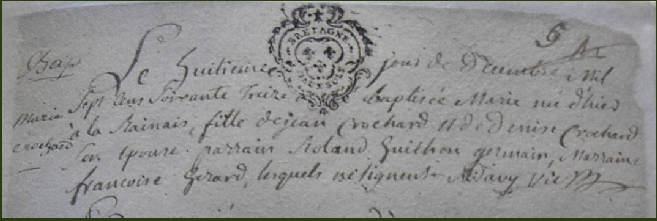 5
Bap
Le huitieme jour de decembre mil
BRETAGNE
Marie Sept Cens Soixante treize baptisée Marie née d'hier
crochard à la Rainais, fille de jean Crochard et de Denise Crochard
son epouse. parrain Roland Guilhon germain, Marraine
francoise Gerard, lesquels ne signent